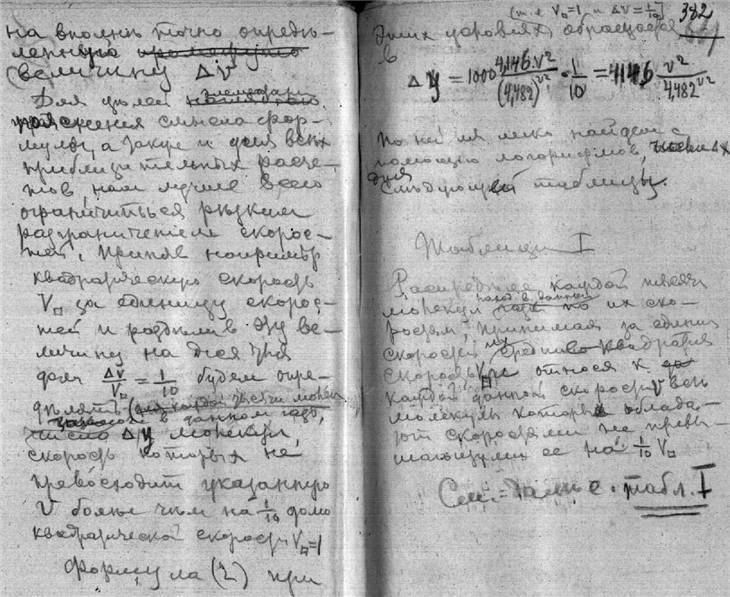 на вполнѣ точно опредѣ-
ленную промежуто
(величину Δv
Для цѣлей элементарн.
пояснения смысла фор-
мулы, а также и для всѣх
приблизительных расче-
тов нам лучше всего
ограничиться рѣзким
разграничением скорос-
тей, приняв например
квадратическую скорость
V□ за единицу скорос-
тей и раздѣлив эту ве-
личину на десять
доля Δv/V□ = 1/10 будем опре-
дѣлять каждой тысячи молекул
в данном газѣ,
число Δy молекул,
скорость которых не
превосходит указанную
v больше чѣм на 1/10 долю
квадратической скорости V□=1
Формула (2) при
(т.е V□=1 и Δv = 1/10) 382
этих условиях обращается
в
Δy = 1000 4,146.v²/(4,482)^v² · 1/10 = 414,6 v²/4,482^v²
По ней мы легко найдем с
помощью логарифмов,
для
слѣдующей таблицы.
Таблица I
Распредѣление каждой тысячи
молекул газа в данный по их ско-
ростям, принимая за единицу
скоростей их среднюю квадратич
скорость V□ и относя к
каждой данной скорости v всѣ
молекулы которые облада-
ют скоростями не превы-
шающими ее на 1/10 V□
См. далѣе табл. I